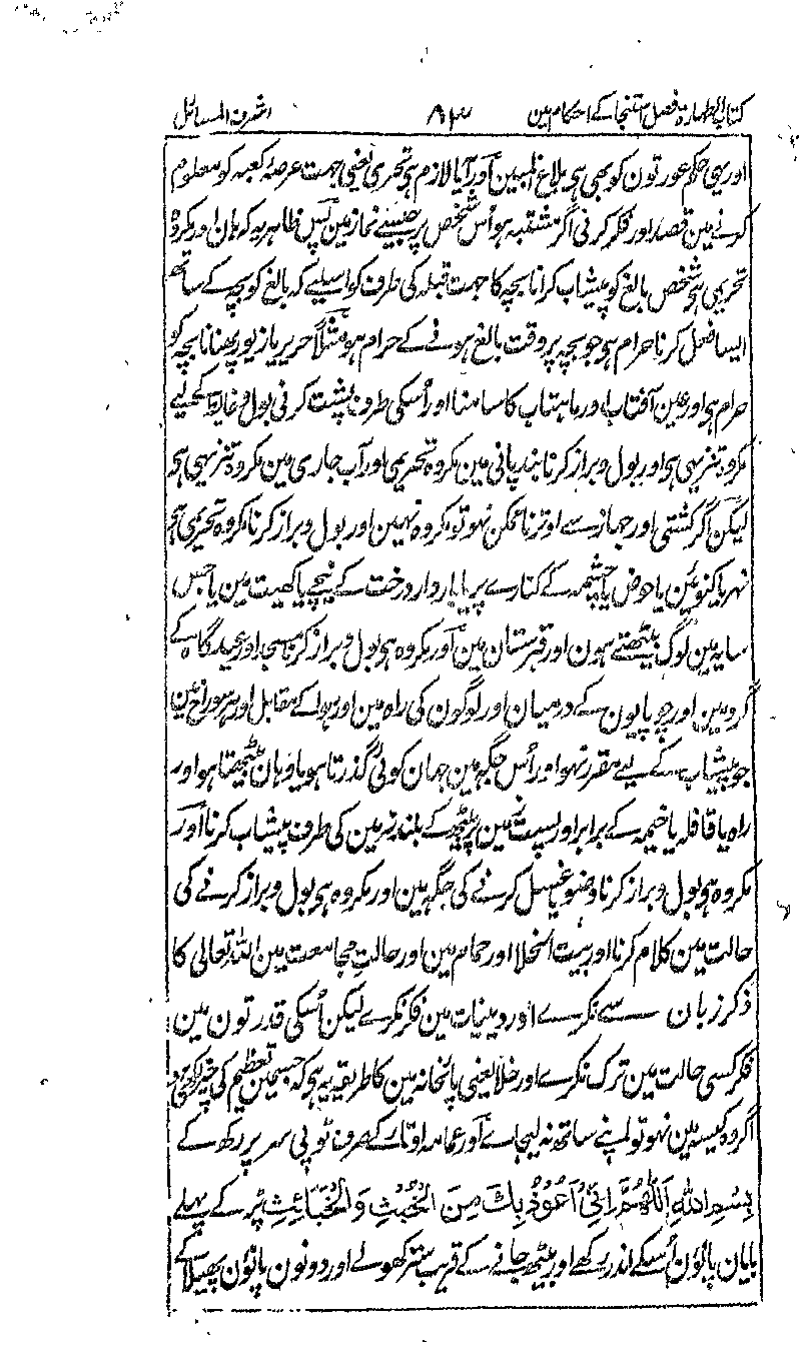 کتاب الطہارۃ فصل استنجا کے احکام مین ۸۳ اشرف المسائل
اور یہی حکم عورتون کو بھی ہی بلاغ المبین اور آیا لازم ہی تحری یعنی جہت عرصہ کعبہ کو معلوم
کرنے مین قصد اور فکر کرنی اگر مشتبہ ہو اُس شخص پر جیسے نماز مین پس ظاہر یہ کہ ہان اور مکروہ
تحریمی ہی شخص بالغ کو پیشاب کرانا بچہ کا جہت قبلہ کی طرف کو اسلیے کہ بالغ کو بچہ کے ساتھ
ایسا فعل کرنا حرام ہی جو بچہ پر وقت بالغ ہونے کے حرام ہو مثلاً حریر یا زیور پہنانا بچہ کو
حرام ہی اور عین آفتاب اور ماہتاب کا سامنا اور اُسکی طرف پشت کرنی بول و غائط کے لیے
مکروہ تنزیہی ہی اور بول و براز کرنا بند پانی مین مکروہ تحریمی اور آب جاری مین مکروہ تنزیہی ہی
لیکن اگر کشتی اور جہاز سے اوترنا ممکن نہو تو مکروہ نہین اور بول و براز کرنا مکروہ تحریمی ہی
نہر یا کنوئین یا حوض یا چشمہ کے کنارے پر یا باردار درخت کے نیچے یا کھیت مین یا جس
سایہ مین لوگ بیٹھتے ہون اور قبرستان مین اور مکروہ ہی بول و براز کرنا مسجد اور عیدگاہ کے
گرد مین اور چوپایون کے درمیان اور لوگون کی راہ مین اور ہوا کے مقابل اور ہر سوراخ مین
جو پیشاب کے لیے مقرر نہو اور اُس جگہ مین جہان کوئی گذرتا ہو یا وہان بیٹھتا ہو اور
راہ یا قافلہ یا خیمہ کے برابر اور پست زمین پر بیٹھ کے بلند زمین کی طرف پیشاب کرنا اور
مکروہ ہی بول و براز کرنا وضو یا غسل کرنے کی جگہ مین اور مکروہ ہی بول و براز کرنے کی
حالت مین کلام کرنا اور بیت الخلا اور حمام مین اور حالت مجامعت مین اللہ تعالی کا
ذکر زبان سے نکرے اور دینیات مین فکر نکرے لیکن اُسکی قدرتون مین
فکر کسی حالت مین ترک نکرے اور خلا یعنی پائخانہ مین کا طریقہ یہ ہی کہ جسمین تعظیم کی چیز لکھی ہو
اگر وہ کیسہ مین نہو تو اپنے ساتھ نہ لیجاے اور عمامہ اوتار کے صرف ٹوپی سر پر رکھ کے
بِسْمِ اللهِ اَللّٰهُمَّ اِنِّیْ اَعُوْذُ بِكَ مِنَ الْخُبُثِ وَالْخَبَائِثِ پڑھ کے پہلے
بایان پائون اُسکے اندر رکھے اور بیٹھ جانے کے قریب ستر کھولے اور دونون پائون پھیلا کے